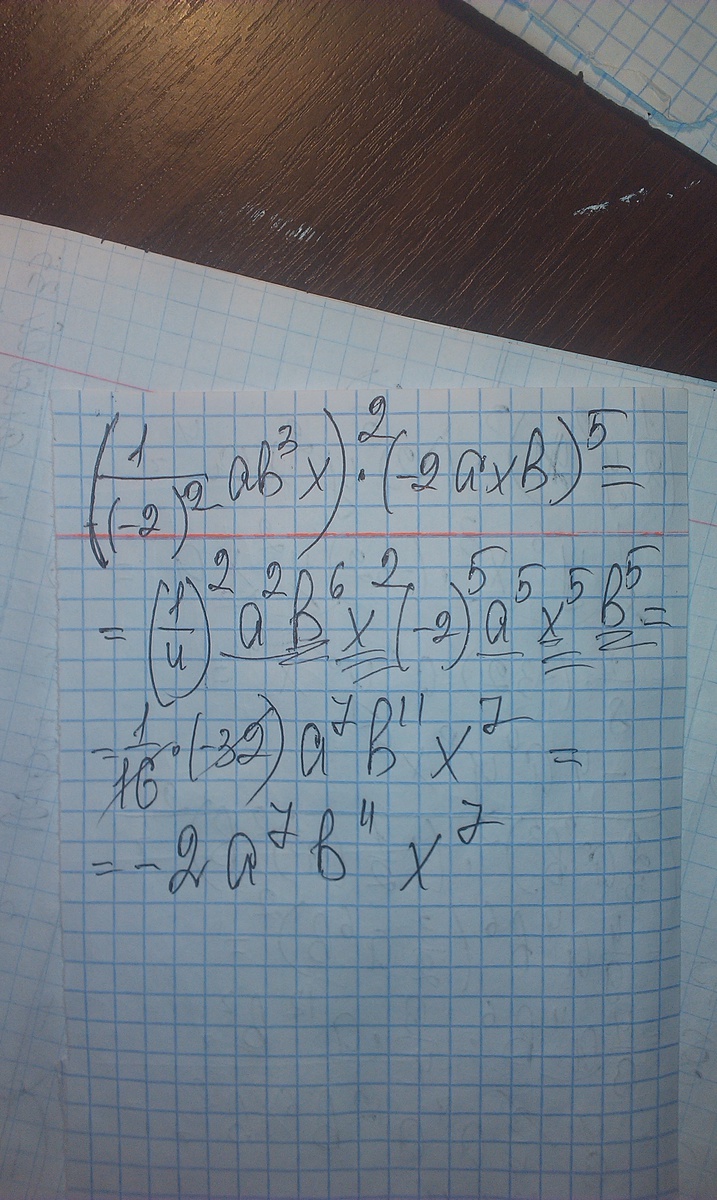 (1/(-2)² ab³x)² · (-2axb)⁵ =
= (1/4)² a² b⁶ x² (-2)⁵ a⁵ x⁵ b⁵ =
= 1/16 · (-32) a⁷ b¹¹ x⁷ =
= -2 a⁷ b¹¹ x⁷